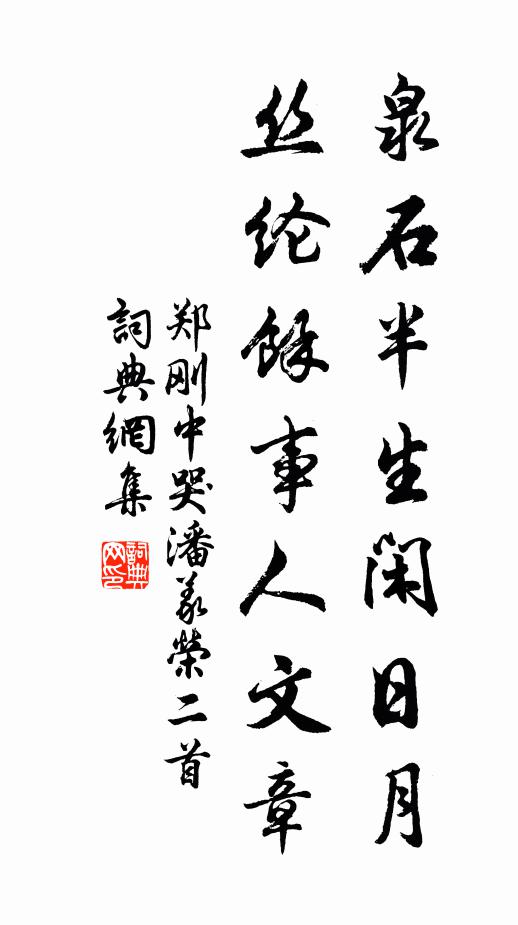 泉石半生闲日月
丝纶馀事人文章
郑刚中哭潘义荣二首
詞典網集
詞典網印